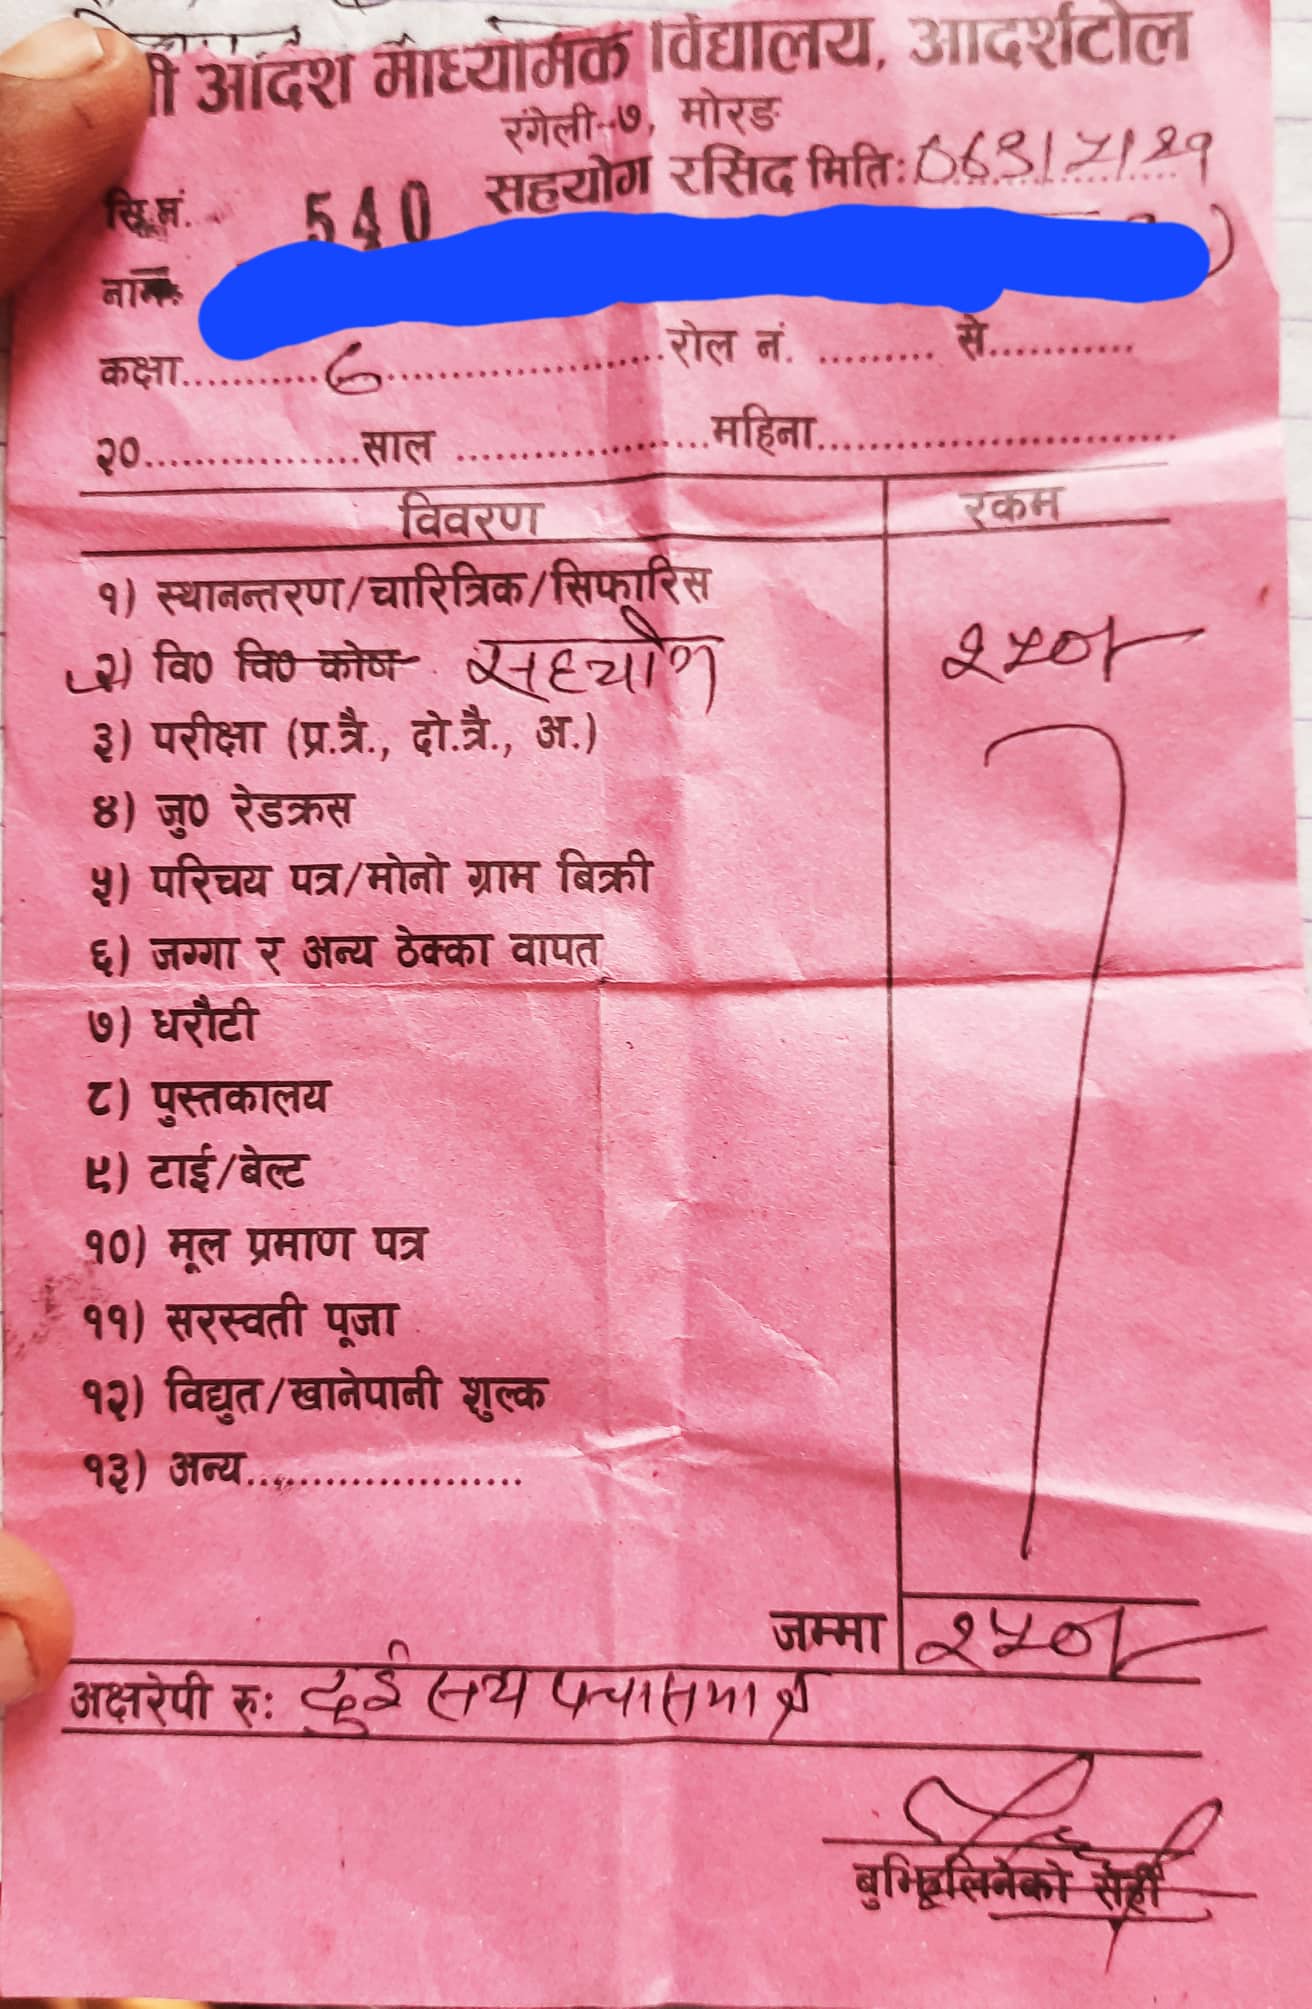 श्री आदर्श माध्यमिक विद्यालय, आदर्शटोल
रंगेली-७, मोरङ
सहयोग रसिद मिति:
सि.नं. 540
नाम:
कक्षा..........6....................रोल नं. ......... से...........
२०................साल ....................महिना............................
विवरण रकम
१) स्थानन्तरण/चारित्रिक/सिफारिस
२) वि० वि० कोष सहयोग २५०/-
३) परीक्षा (प्र.त्रै., दो.त्रै., अ.)
४) जु० रेडक्रस
५) परिचय पत्र/मोनो ग्राम बिक्री
६) जग्गा र अन्य ठेक्का वापत
७) धरौटी
८) पुस्तकालय
९) टाई/बेल्ट
१०) मूल प्रमाण पत्र
११) सरस्वती पूजा
१२) विद्युत/खानेपानी शुल्क
१३) अन्य.....................
जम्मा २५०/-
अक्षरेपी रु: दुई सय पचास मात्र
बुझिलिनेको सही